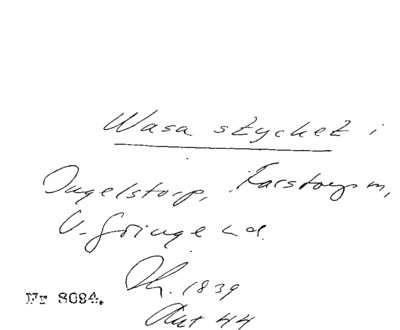 Wasa stycket i
Ingelstorp, Farstorps sn,
V. Göinge hd.
Nr 8084. Th. 1839
Akt 44